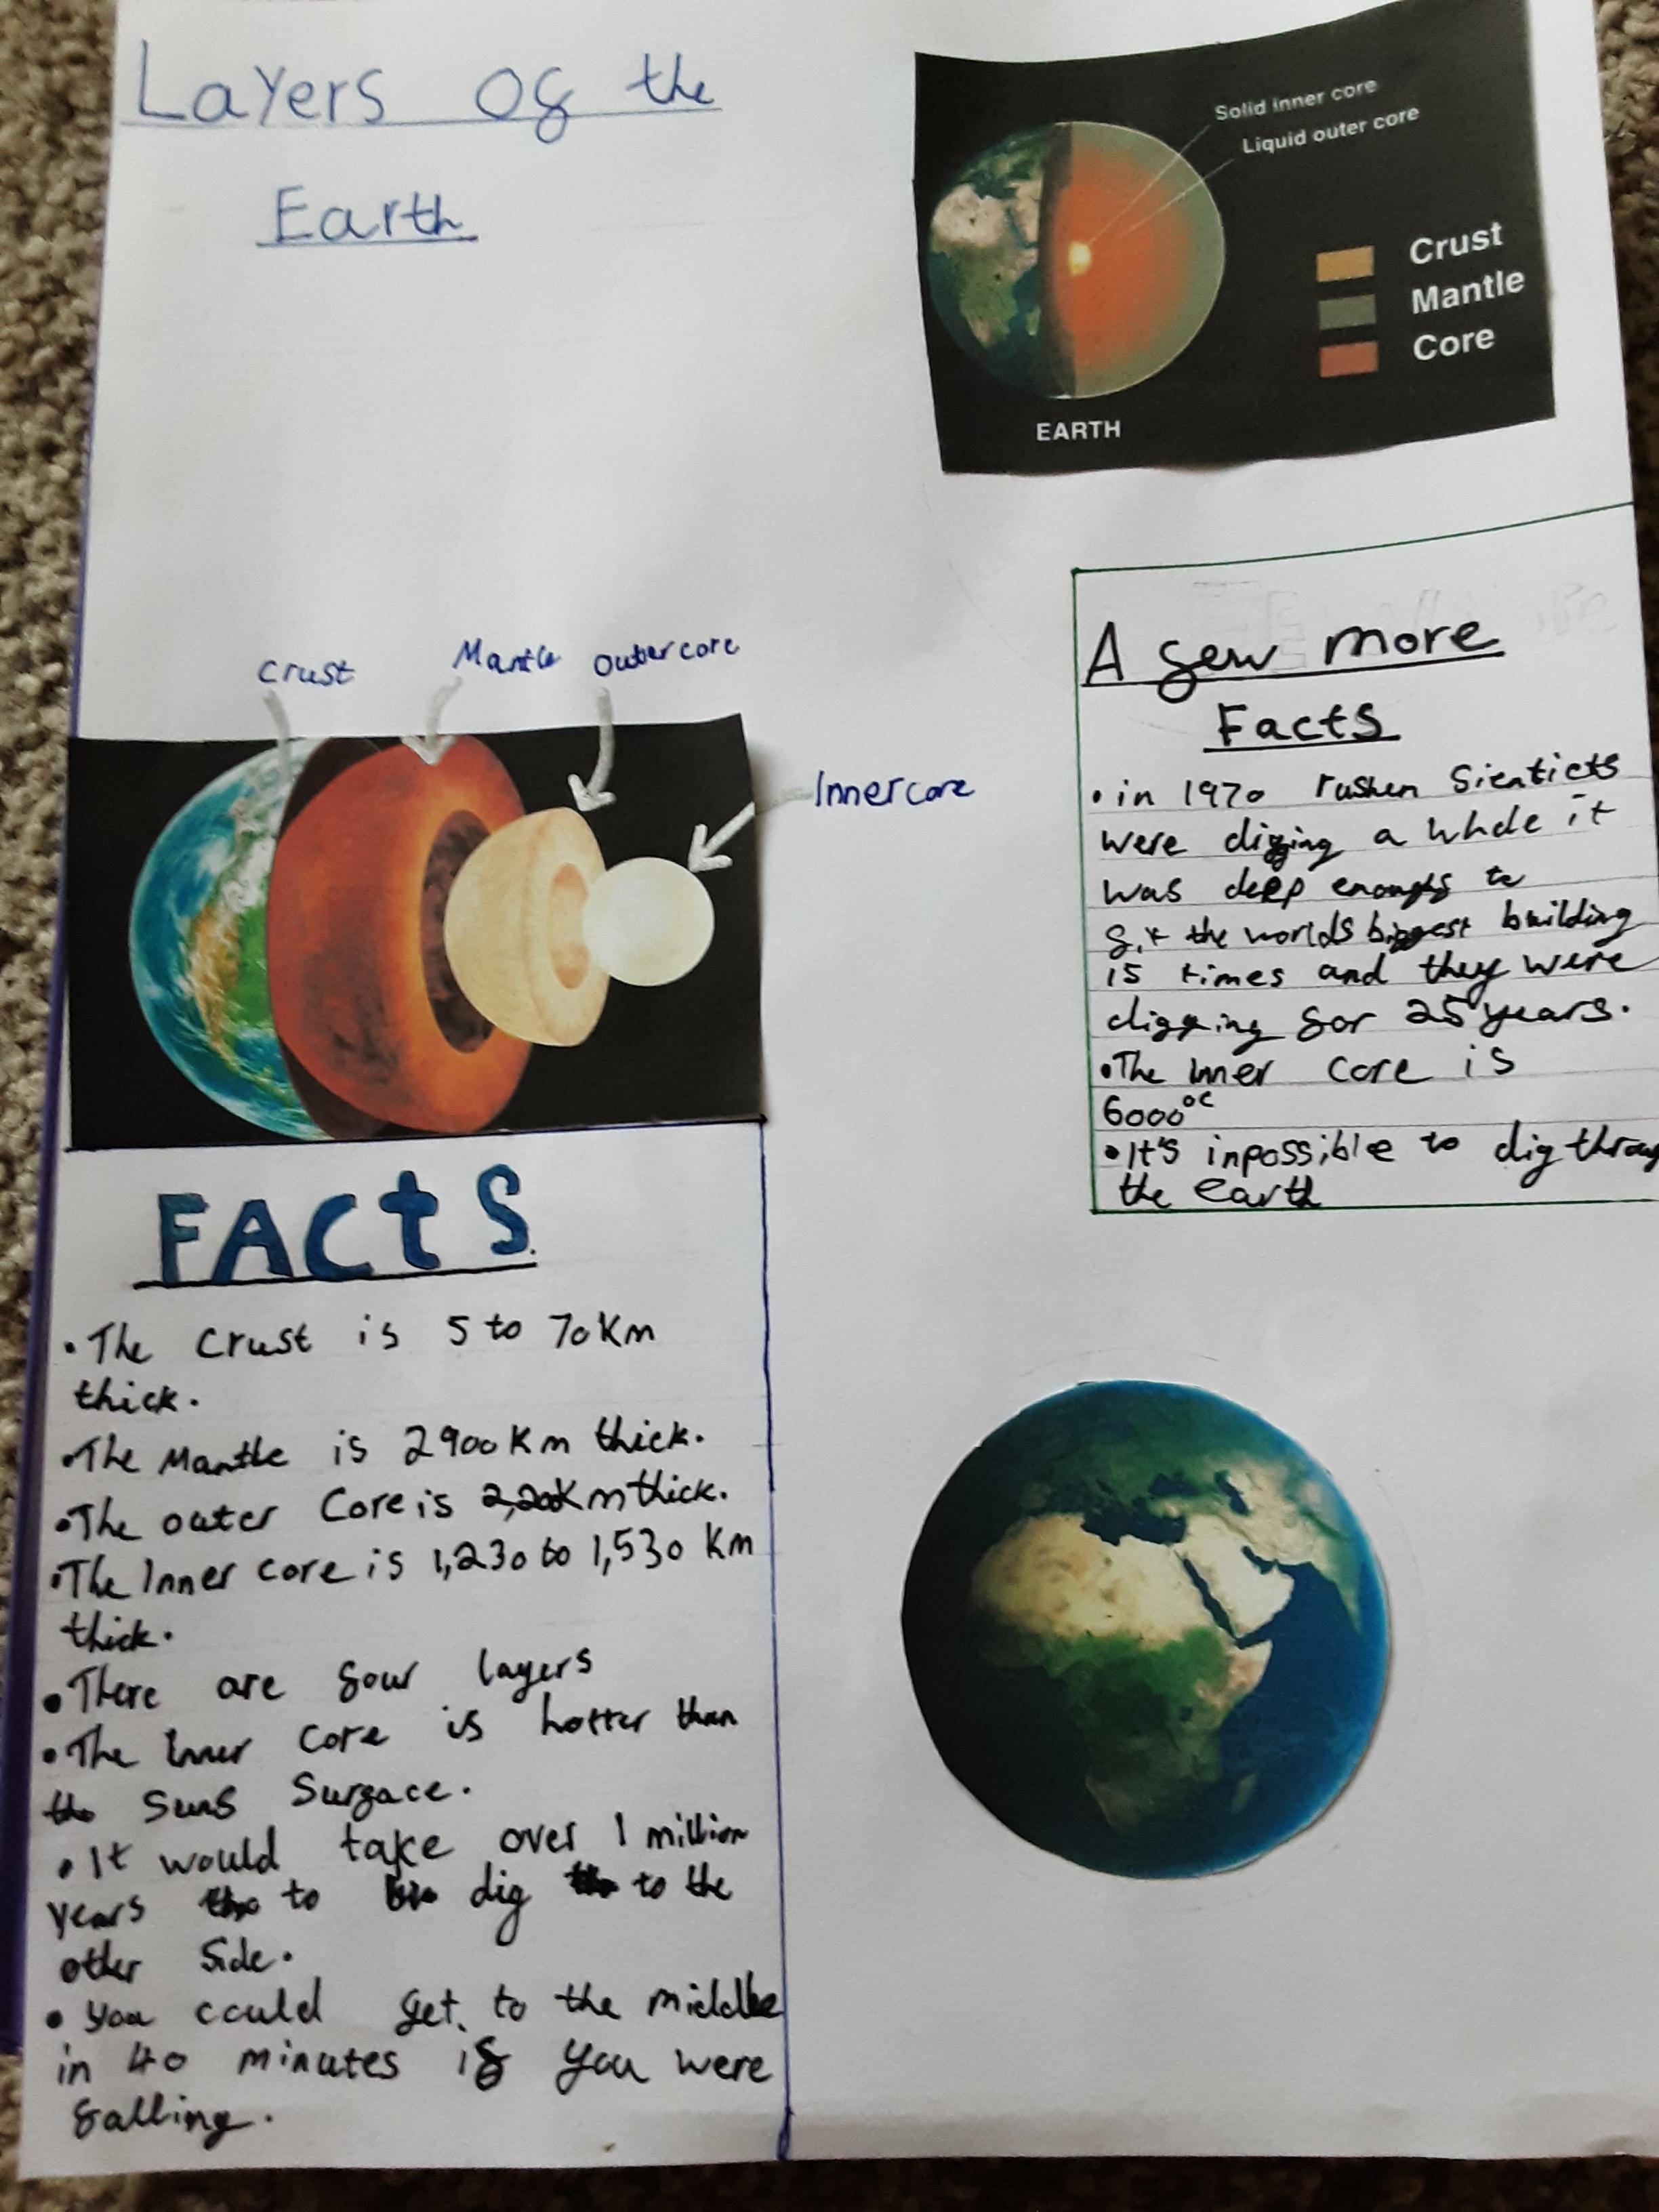 Layers of the
Earth
Solid inner core
Liquid outer core
Crust
Mantle
Core
EARTH
Crust
Mantle
outer core
Inner core
A few more
Facts
• in 1970 rushen Sienticts
were digging a whole it
was deep
fit the worlds biggest building
15 times and they were
digging for 25 years.
• The Inner core is
6000°C
• It's inpossible to dig
the earth
FACtS.
• The Crust is 5 to 70Km
thick.
• The Mantle is 2900Km thick.
• The outer Core is 2,200Km thick.
• The Inner core is 1,230 to 1,530 Km
thick.
• There are four layers
• The Inner Core is hotter than
the Suns Surface.
• It would take over 1 million
years to dig to the
other Side.
• You could get to the middle
in 40 minutes if you were
falling.